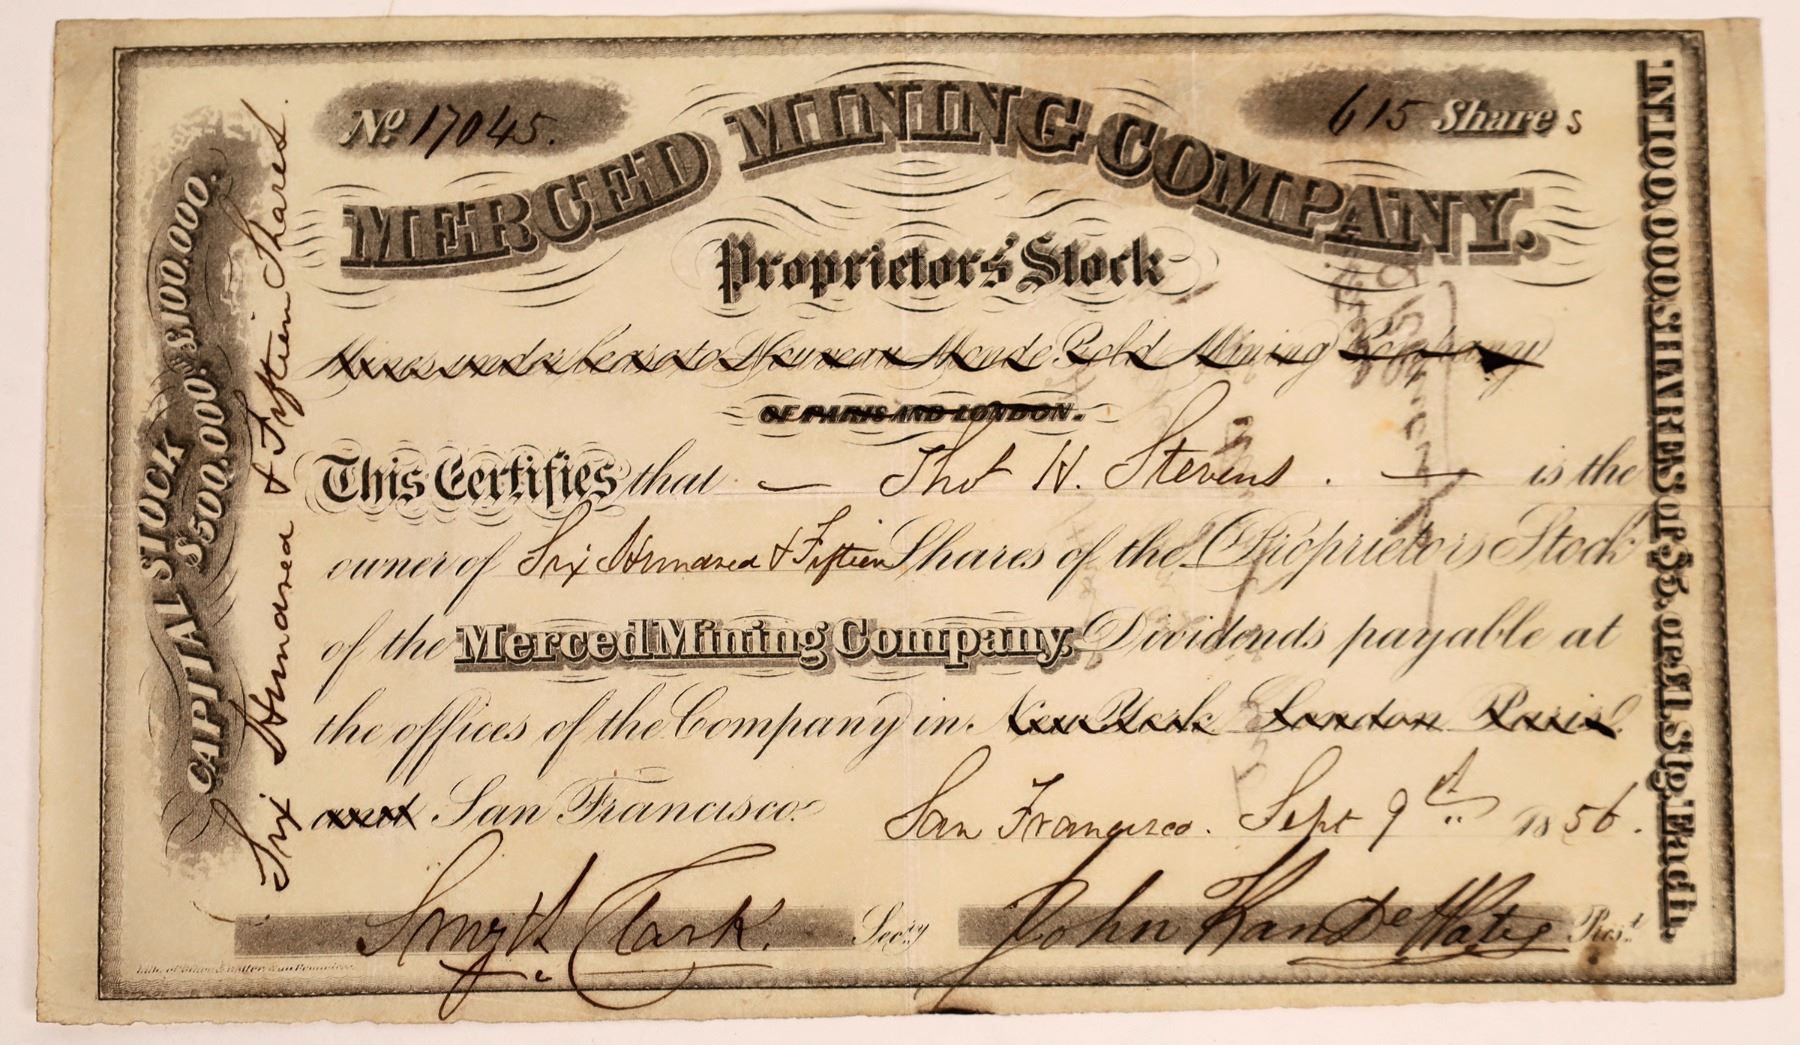 No 17045.
615 Shares
MERCED MINING COMPANY.
Proprietor's Stock
Mines under lease to Nouveau Monde Gold Mining Company
OF PARIS AND LONDON.
This Certifies that Thos H. Stevens. is the
owner of Six Hundred & Fifteen Shares of the Proprietors Stock
of the Merced Mining Company, Dividends payable at
the offices of the Company in New York London Paris
and San Francisco.
San Francisco. Sept 9th 1856.
Clark. Secty
John Pres.t
CAPITAL STOCK
$500,000. £100.000.
Six Hundred & Fifteen Shares.
IN 100.000 SHARES OF $5. or £1 Stg. Each.